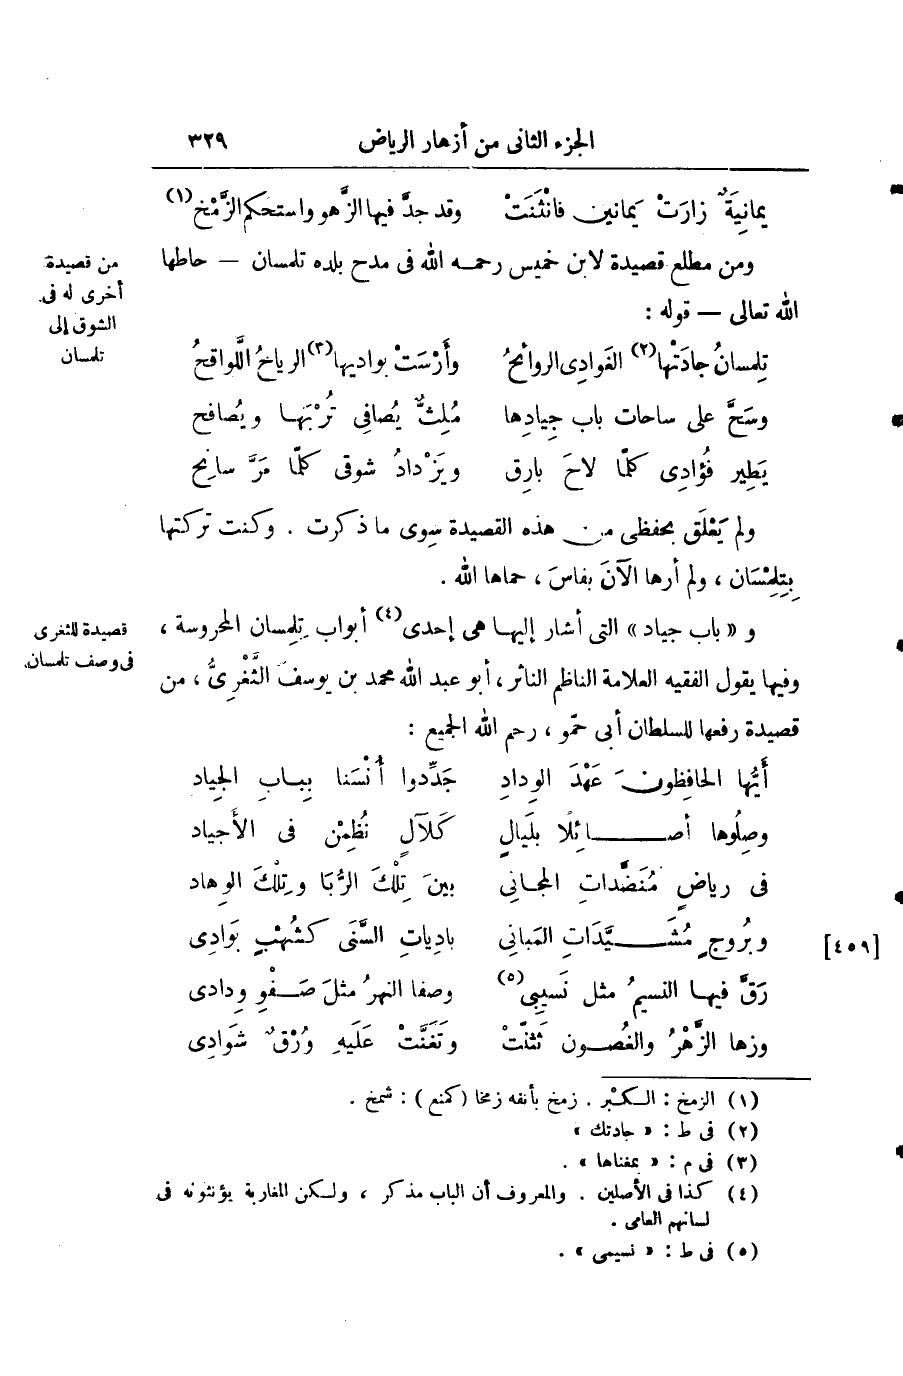 الجزء الثانى من أزهار الرياض ٣٢٩
يمانِيَةٌ زارَتْ يمانين فانْثَنَتْ وقد جدَّ فيها الزَّهو واستحكم الزَّمْخ(١)
ومن مطلع قصيدة لابن خميس رحمه الله فى مدح بلده تلمسان — حاطها
الله تعالى — قوله :
من قصيدة
أخرى له فى
الشوق إلى
تلمسان
تِلِمسانُ جادَتْها(٢) الغَوادِى الروائحُ وأَرْسَتْ بواديها(٣) الرياحُ اللَّواقحُ
وسَحَّ على ساحات باب جِيادِها مُلِثٌّ يُصافِى تُرْبَهَا ويُصافح
يَطِير فُؤادِى كلّما لاحَ بارِق ويَزْدادُ شوقى كلّما مَرَّ سانِح
ولم يَعْلَق بحفظى من هذه القصيدة سِوى ما ذكرت . وكنت تركتها
بِتِلِمْسَان ، ولم أرها الآنَ بفاسَ ، حماها الله .
و « باب جياد » التى أشار إليها هى إحدى(٤) أبواب تِلِمسان المحروسة ،
قصيدة للثغرى
فى وصف تلمسان.
وفيها يقول الفقيه العلامة الناظم الناثر ، أبو عبد الله محمد بن يوسفَ الثَّغْرِىُّ ، من
قصيدة رفعها للسلطان أبى حمّو ، رحم الله الجميع :
أَيُّها الحافِظونَ عَهْدَ الوِدادِ جَدِّدوا أُنْسَنا بِبابِ الجِياد
وصِلُوها أصائِلًا بلَيالٍ كَلآلٍ نُظِمْن فى الأجياد
فى رياضٍ مُنَضَّداتِ المجانِى بينَ تِلْكَ الرُّبَا وتِلْكَ الوِهاد
وبُروجٍ مُشَيَّدَاتِ المَبانِى بادِياتِ السَّنَى كشُهْبٍ بَوَادِى
[٤٥٩]
رَقَّ فيها النسيمُ مثل نَسيبِى(٥) وصفا النهرُ مثلَ صَفْوِ وِدادى
وزها الزَّهْرُ والغُصون تَثنَّتْ وتَغَنَّتْ عَلَيهِ وُرْقٌ شَوَادِى
(١) الزمخ : الكبْر . زمخ بأنفه زمخا (كمنع) : شمخ .
(٢) فى ط : « جادتك »
(٣) فى م : « بمغناها » .
(٤) كذا فى الأصلين . والمعروف أن الباب مذكر ، ولكن المغاربة يؤنثونه فى
لسانهم العامى .
(٥) فى ط : « نسيمى » .